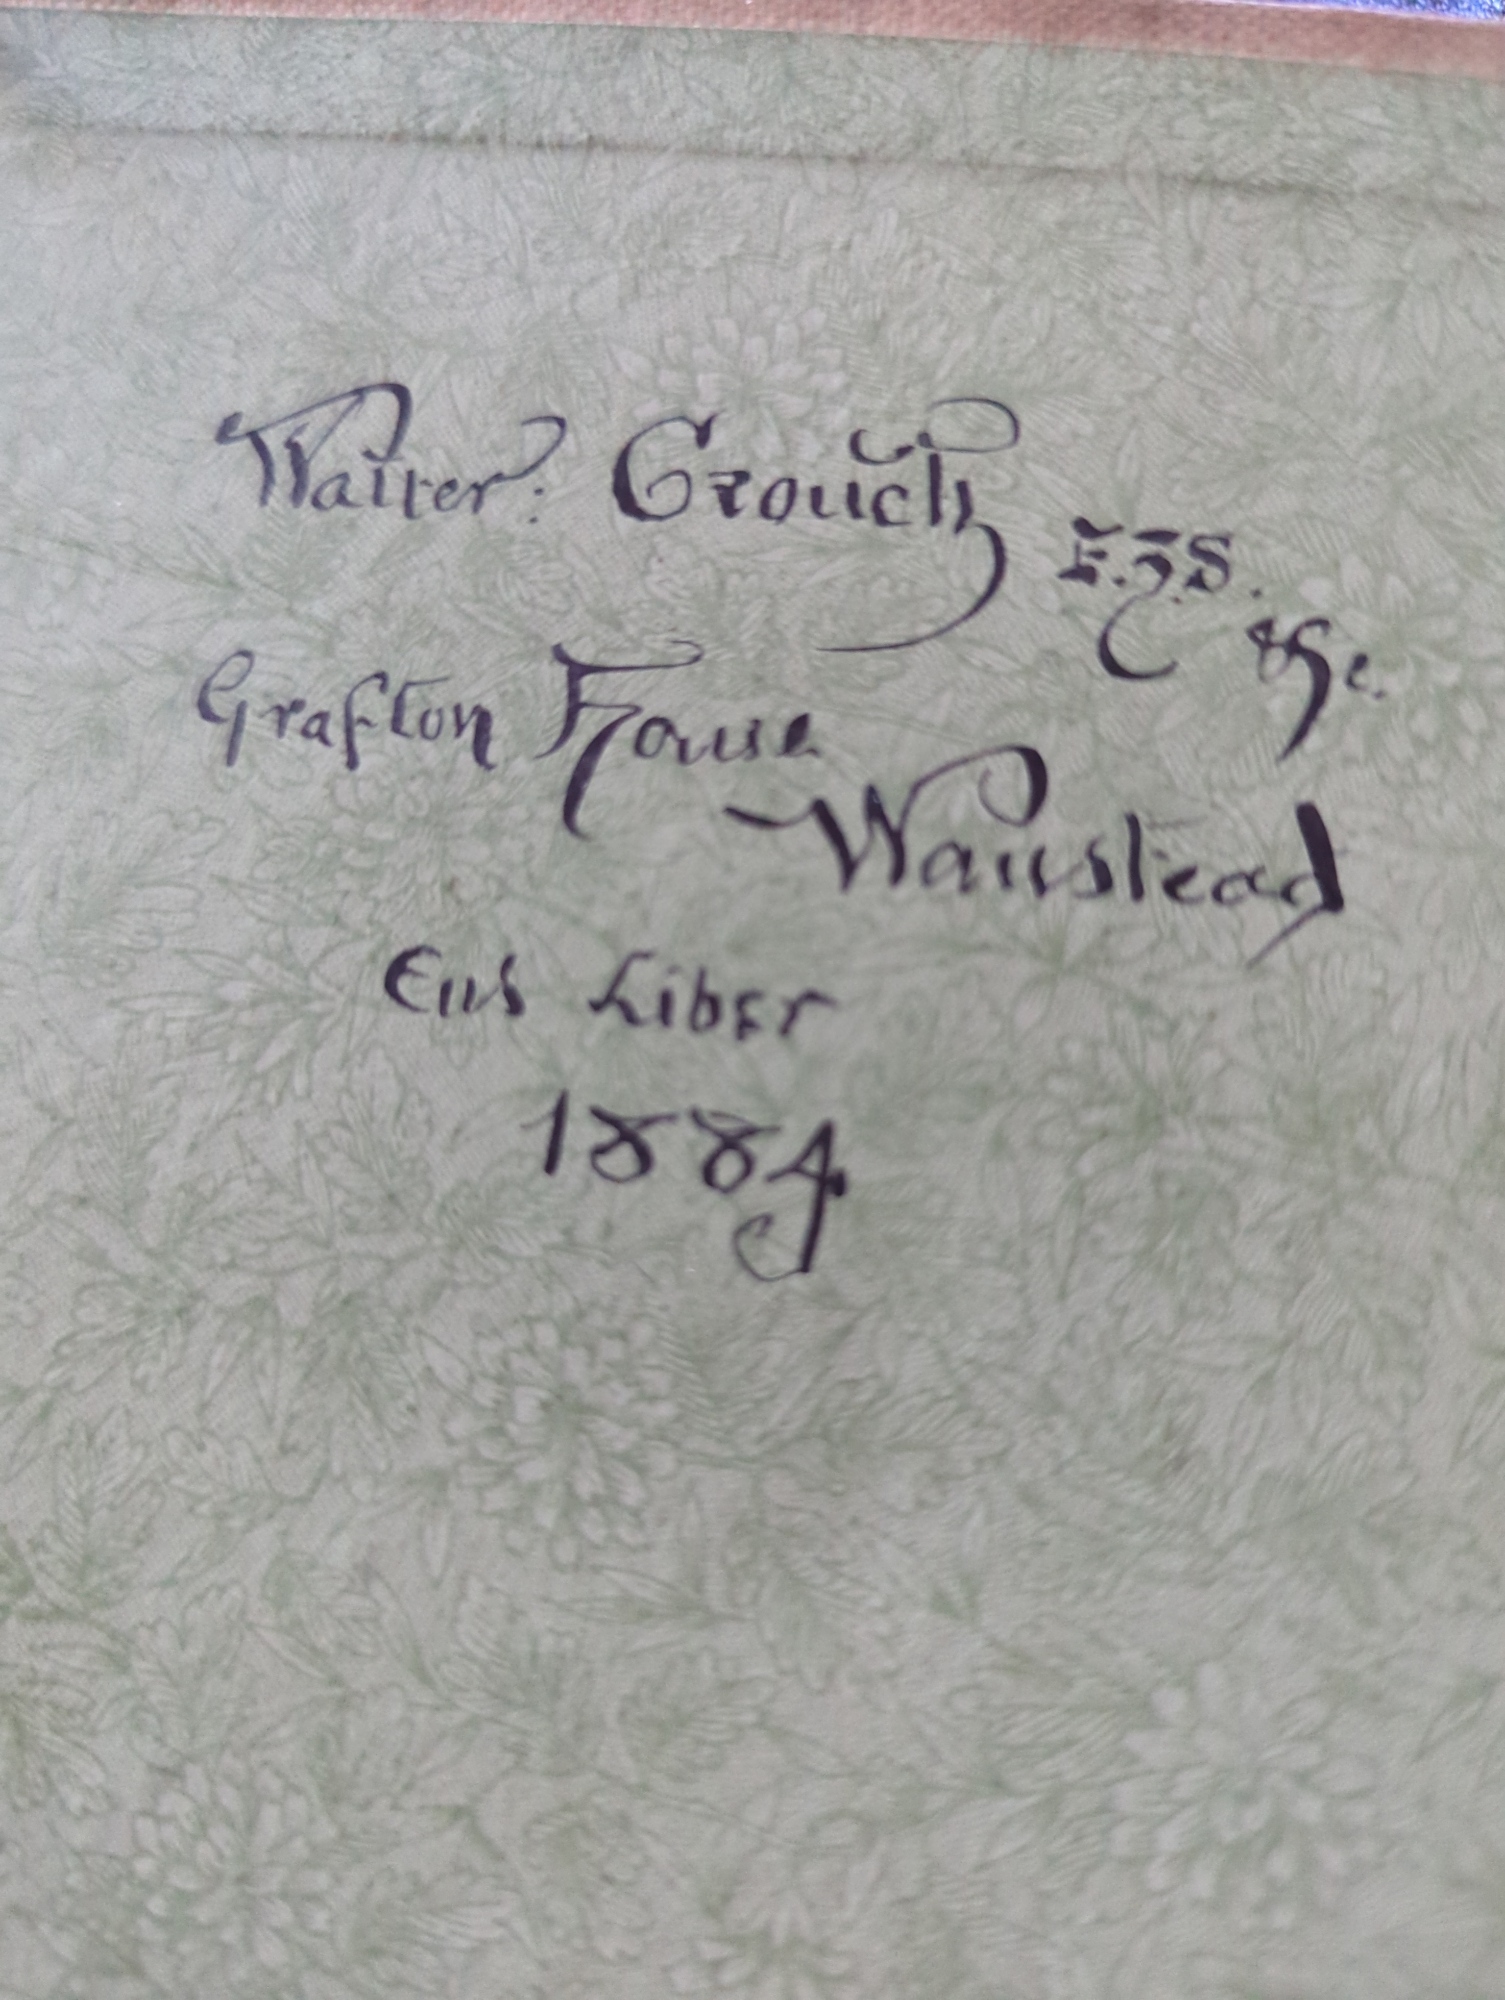 Walter: Crouch F.Z.S. &c.
Grafton House
Wanstead
Eius Liber
1884